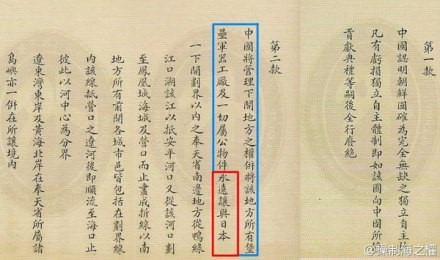 中國認明朝鮮國確為完全無缺之獨立自主故
凡有虧損獨立自主體制即如該國向中國所修
貢獻典禮等嗣後全行廢絕
第二款
中國將管理下開地方之權併將該地方所有堡
壘軍器工廠及一切屬公物件永遠讓與日本
一下開劃界以內之奉天省南邊地方從鴨綠
江口溯該江以抵安平河口又從該河口劃
至鳳凰城海城及營口而止畫成折線以南
地方所有前開各城市邑皆包括在劃界線
內該線抵營口之遼河後即順流至海口止
彼此以河中心為分界
遼東灣東岸及黃海北岸在奉天省所屬諸
島嶼亦一併在所讓境內